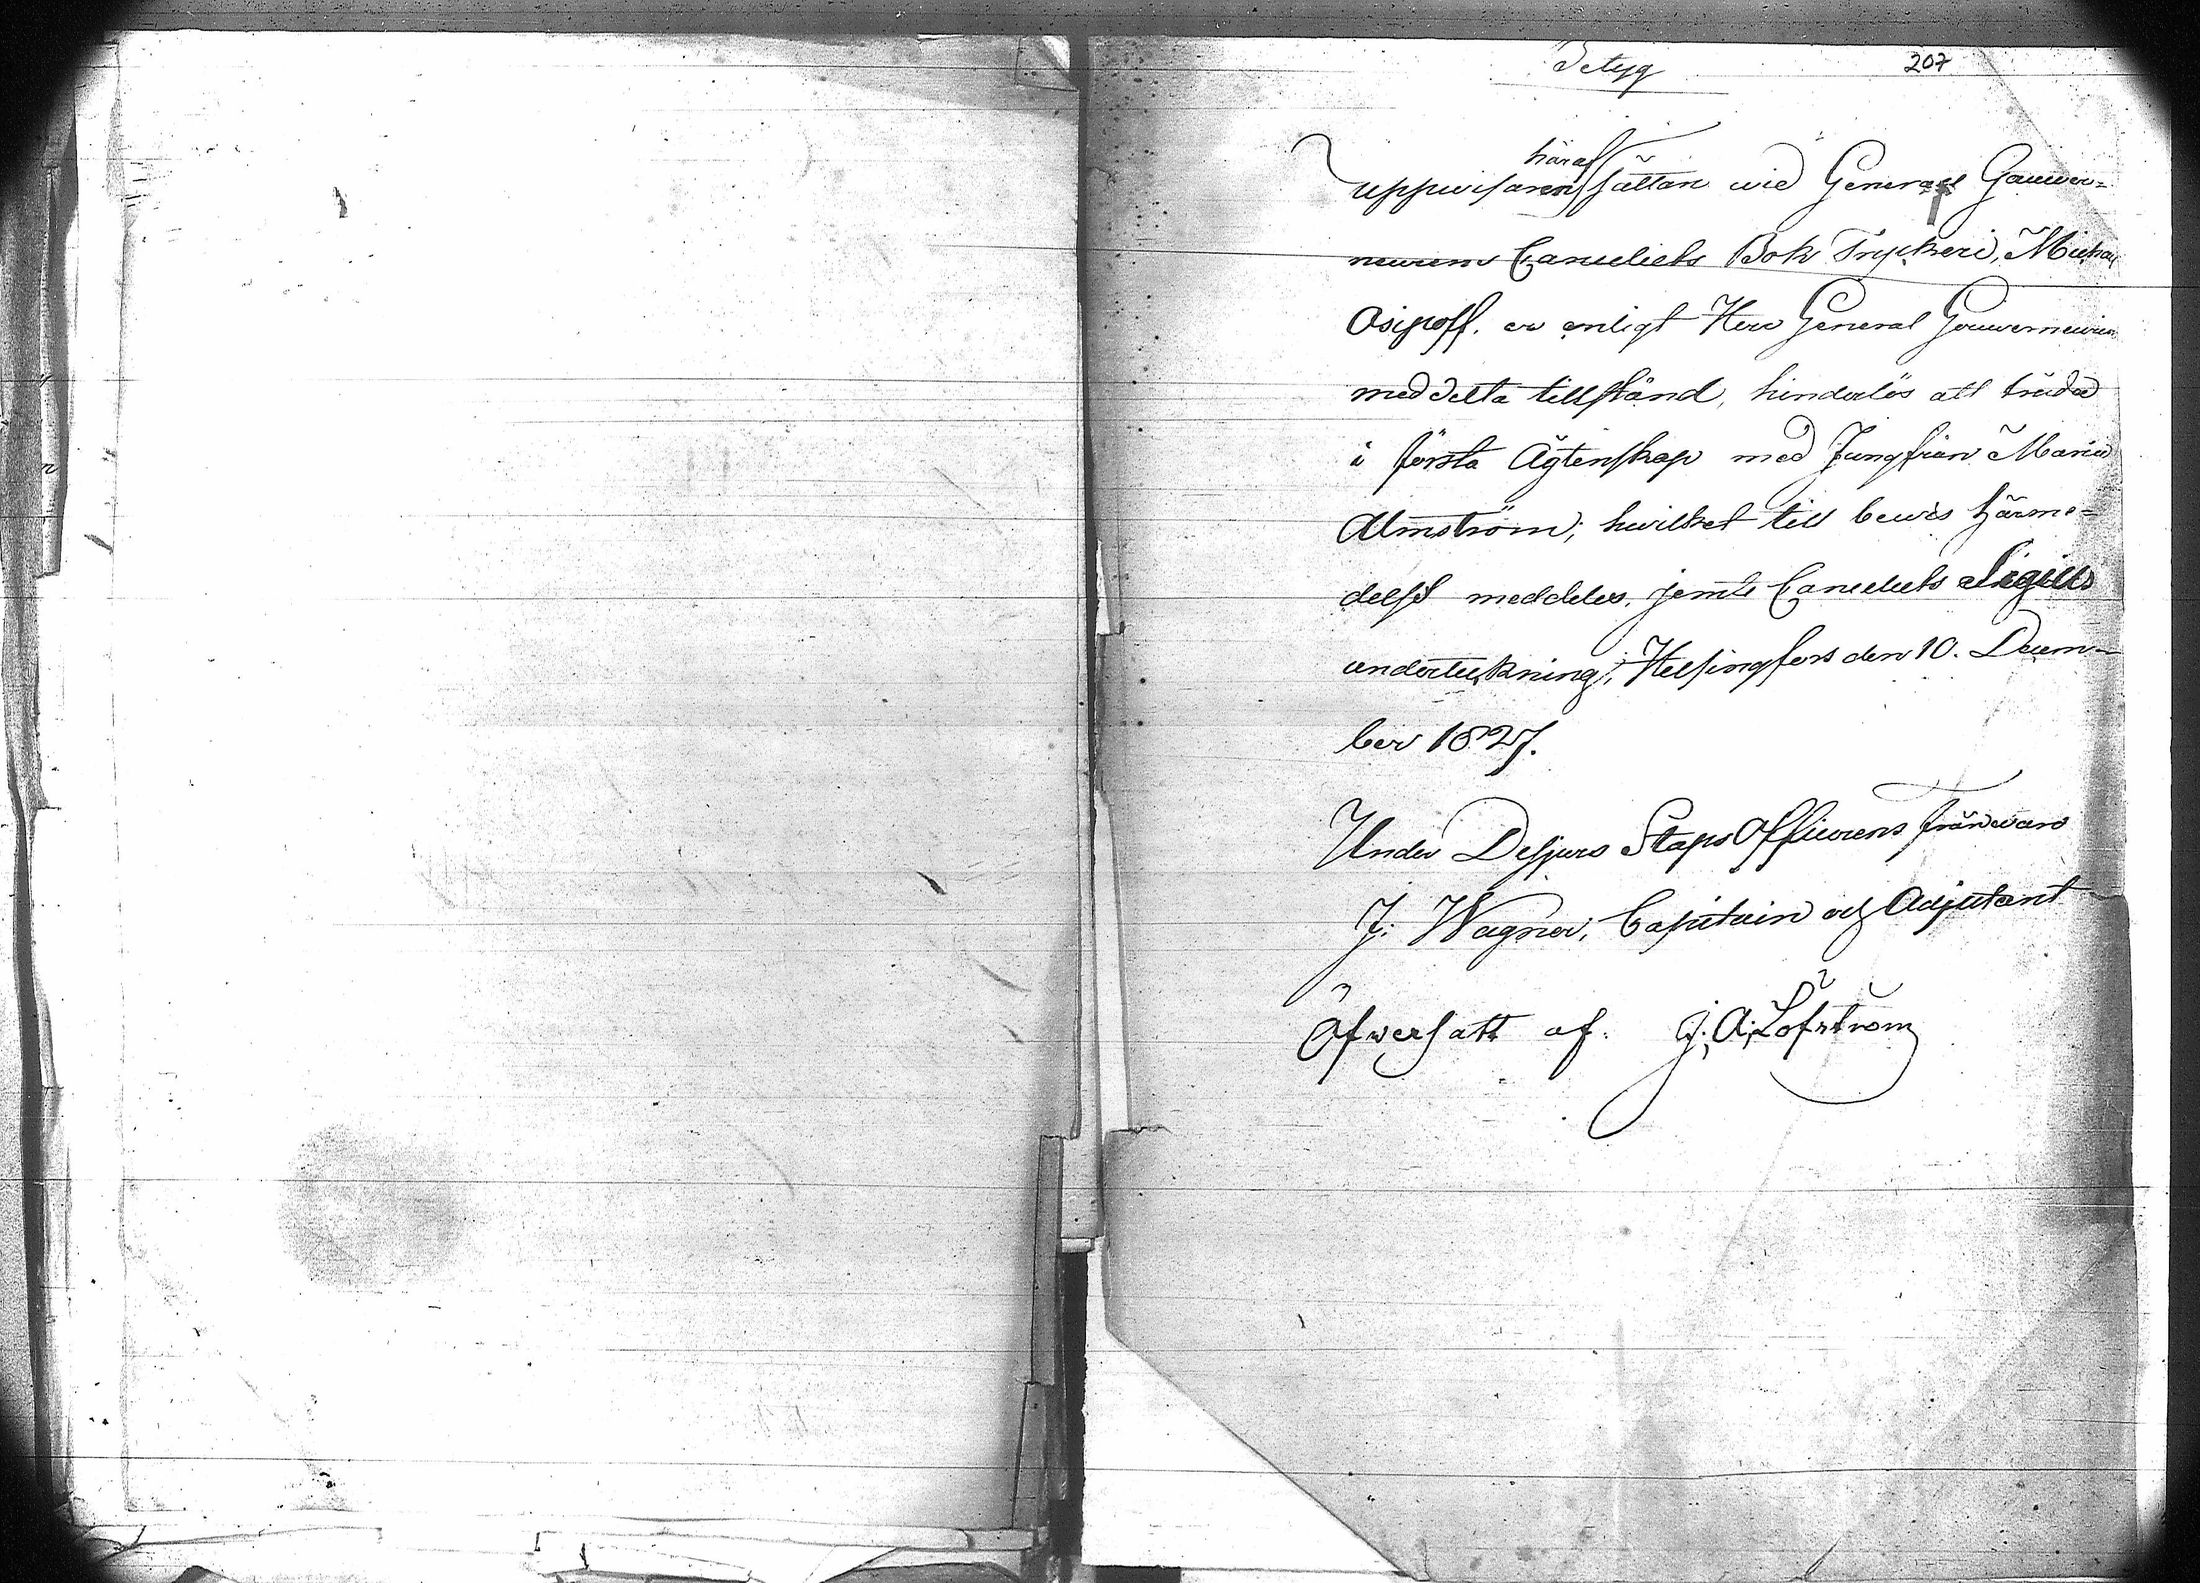 Betyg
207
häraf
Uppwisaren sättan wid General Gouver=
neurens Canceliets Bok Tryckeri, Michail
Osipoff. er enligt Herr General Gouverneuren
meddelta tillstånd, hinderlös att träda
i första Ägtenskap med Jungfrun Maria
Almström; hwilket till bewis härme=
delst meddeles, jemte Canceliets Sigills
underteckning; Helsingfors den 10. Decem-
ber 1827.
Under Desjurs Staps Officerens frånwaro
J. Wagner, Capitain och Adjutant
Öfwersatt af. J. A. Löfström